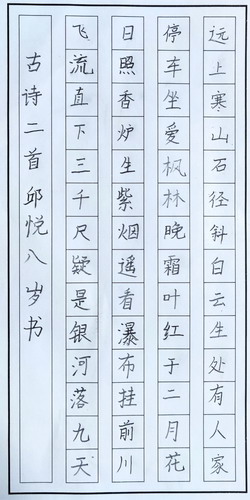 远上寒山石径斜白云生处有人家
停车坐爱枫林晚霜叶红于二月花
日照香炉生紫烟遥看瀑布挂前川
飞流直下三千尺疑是银河落九天
古诗二首邱悦八岁书